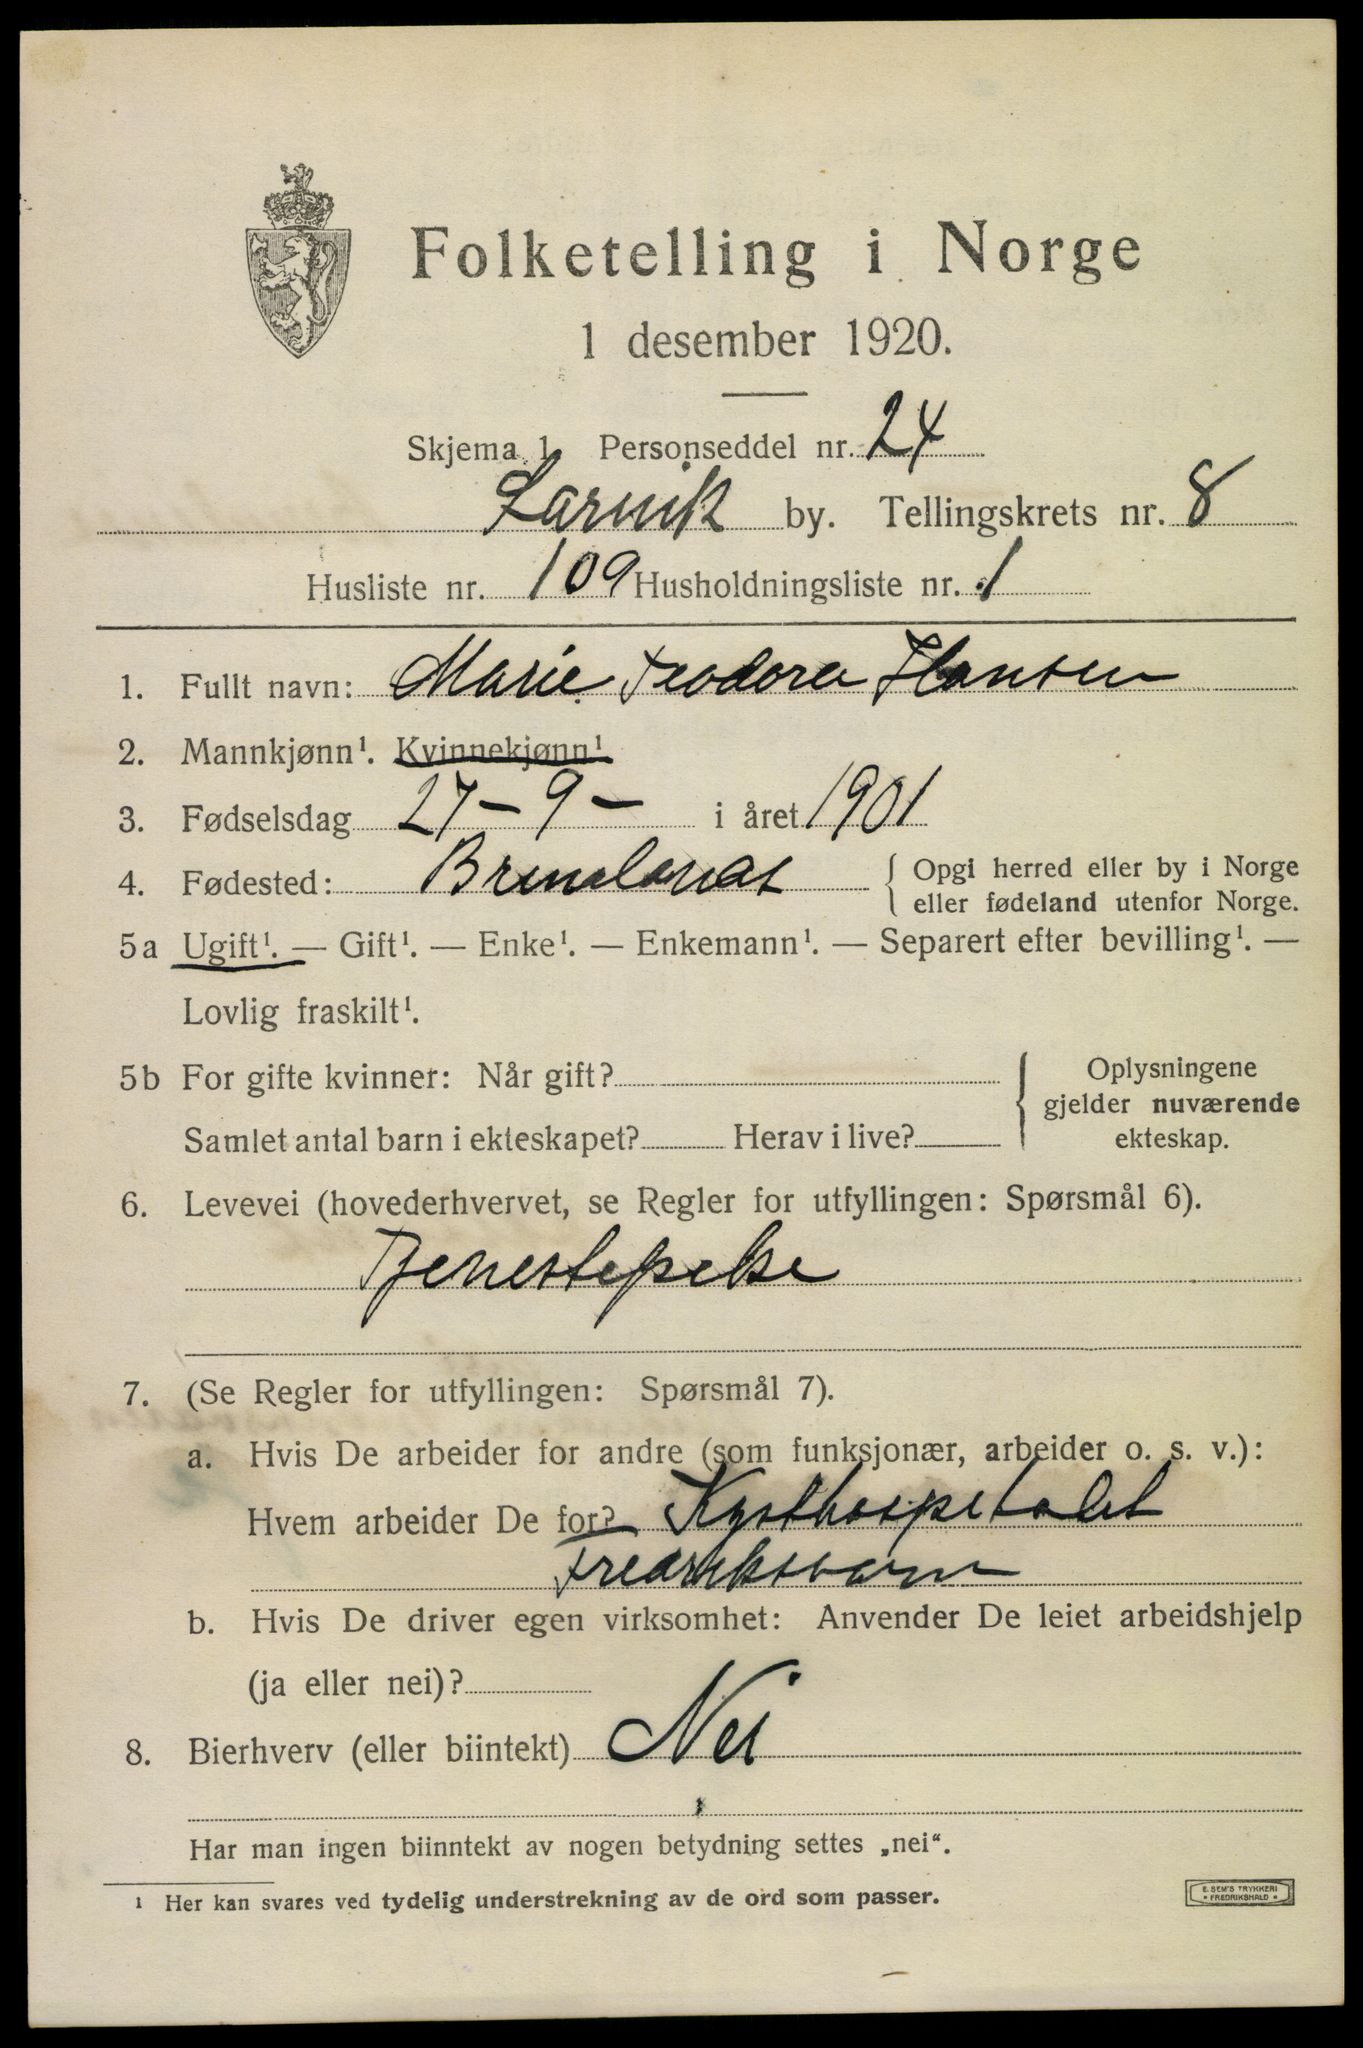 Folketelling i Norge
1 desember 1920.
Skjema 1. Personseddel nr. 24
Larvik by. Tellingskrets nr. 8
Husliste nr. 109 Husholdningsliste nr. 1
1. Fullt navn: Marie Teodora Hansen
2. Mannkjønn¹. Kvinnekjønn¹
3. Fødselsdag 27-9- i året 1901
4. Fødested: Brunlanæs { Opgi herred eller by i Norge
eller fødeland utenfor Norge.
5a Ugift¹. — Gift¹. — Enke¹. — Enkemann¹. — Separert efter bevilling¹. —
Lovlig fraskilt¹.
5b For gifte kvinner: Når gift?
Samlet antal barn i ekteskapet? Herav i live?
Oplysningene
gjelder nuværende
ekteskap.
6. Levevei (hovederhvervet, se Regler for utfyllingen: Spørsmål 6).
Tjenestepike
7. (Se Regler for utfyllingen: Spørsmål 7).
a. Hvis De arbeider for andre (som funksjonær, arbeider o. s. v.):
Hvem arbeider De for? Kysthospitalet
Fredriksværn
b. Hvis De driver egen virksomhet: Anvender De leiet arbeidshjelp
(ja eller nei)?
8. Bierhverv (eller biintekt) Nei
Har man ingen biinntekt av nogen betydning settes „nei“.
¹ Her kan svares ved tydelig understrekning av de ord som passer.
E. SEM'S TRYKKERI
* FREDRIKSHALD *